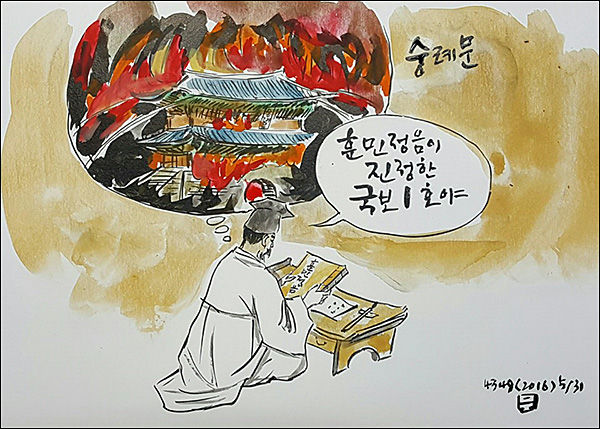 숭례문
훈민정음이
진정한
국보 1 호야
4349(2016) 5/31
문